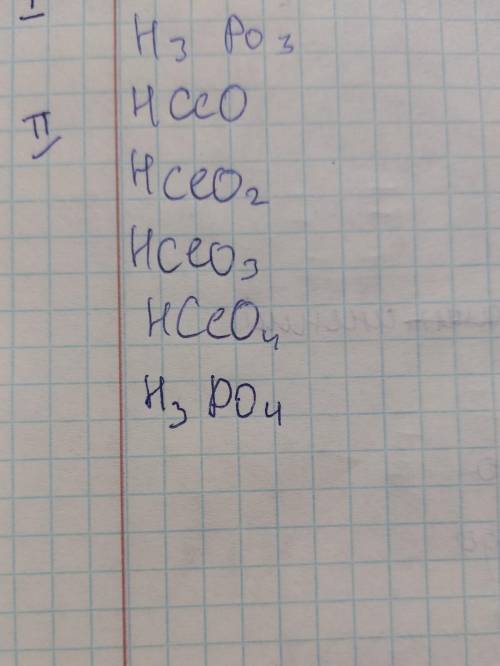 I
H₃ PO₃
HClO
II
HClO₂
HClO₃
HClO₄
H₃ PO₄